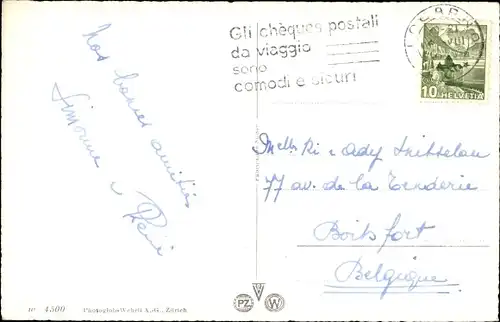 Gli chèques postali
da viaggio
sono
comodi e sicuri
LOCARNO
10 HELVETIA
Nos bonnes amitiés
Simonne & René
Ady
77 av. de la
Boitsfort
Belgique
N° 4500 Photoglob-Wehrli A.-G., Zürich
PZ W